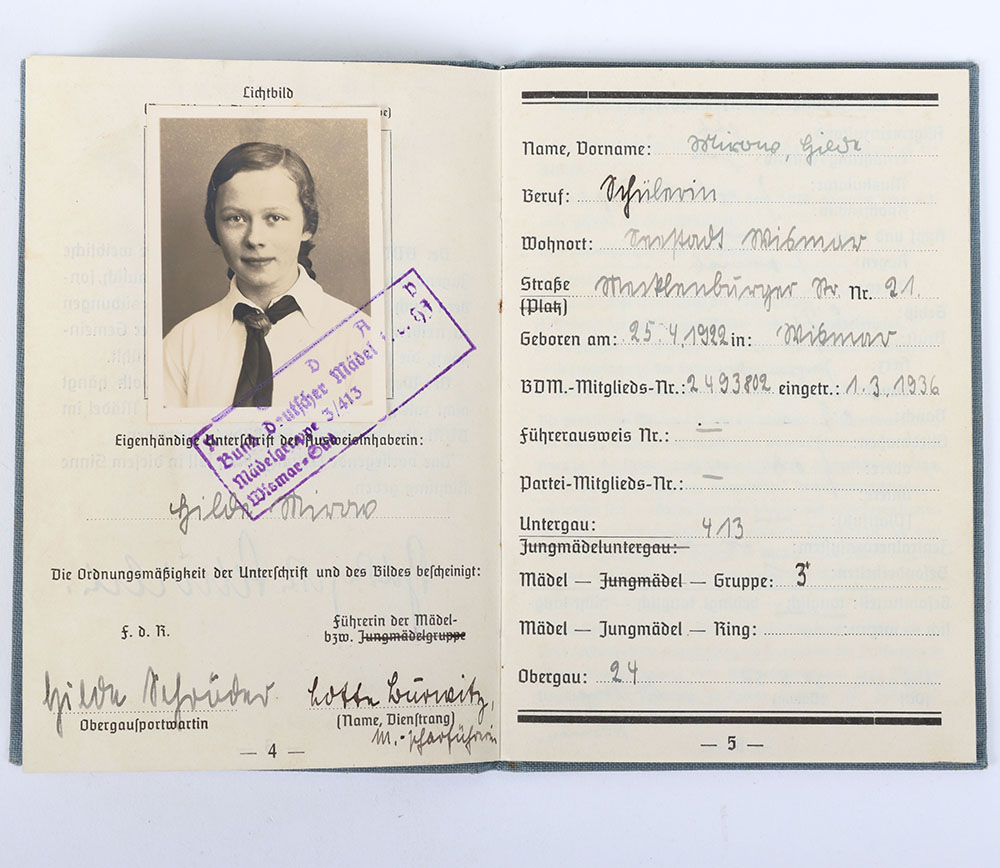 Lichtbild
N S D A P
Bund Deutscher Mädel i. d. HJ
Mädelgruppe 3/413
Wismar-Süd
Eigenhändige Unterschrift der Ausweisinhaberin:
Hilde Mirow
Die Ordnungsmäßigkeit der Unterschrift und des Bildes bescheinigt:
F. d. R.
Führerin der Mädel-
bzw. Jungmädelgruppe
Hilde Schröder
Obergausportwartin
Lotte Burwitz,
(Name, Dienstrang)
M.-Scharführerin
— 4 —
Name, Vorname: Mirow, Hilde
Beruf: Schülerin
Wohnort: Seestadt Wismar
Straße Mecklenburger Str. Nr. 21.
(Platz)
Geboren am: 25.4.1922 in: Wismar
BDM.-Mitglieds-Nr.: 2493802 eingetr.: 1.3.1936
Führerausweis Nr.: —
Partei-Mitglieds-Nr.: —
Untergau: 413
Jungmädeluntergau:
Mädel — Jungmädel — Gruppe: 3
Mädel — Jungmädel — Ring:
Obergau: 24
— 5 —